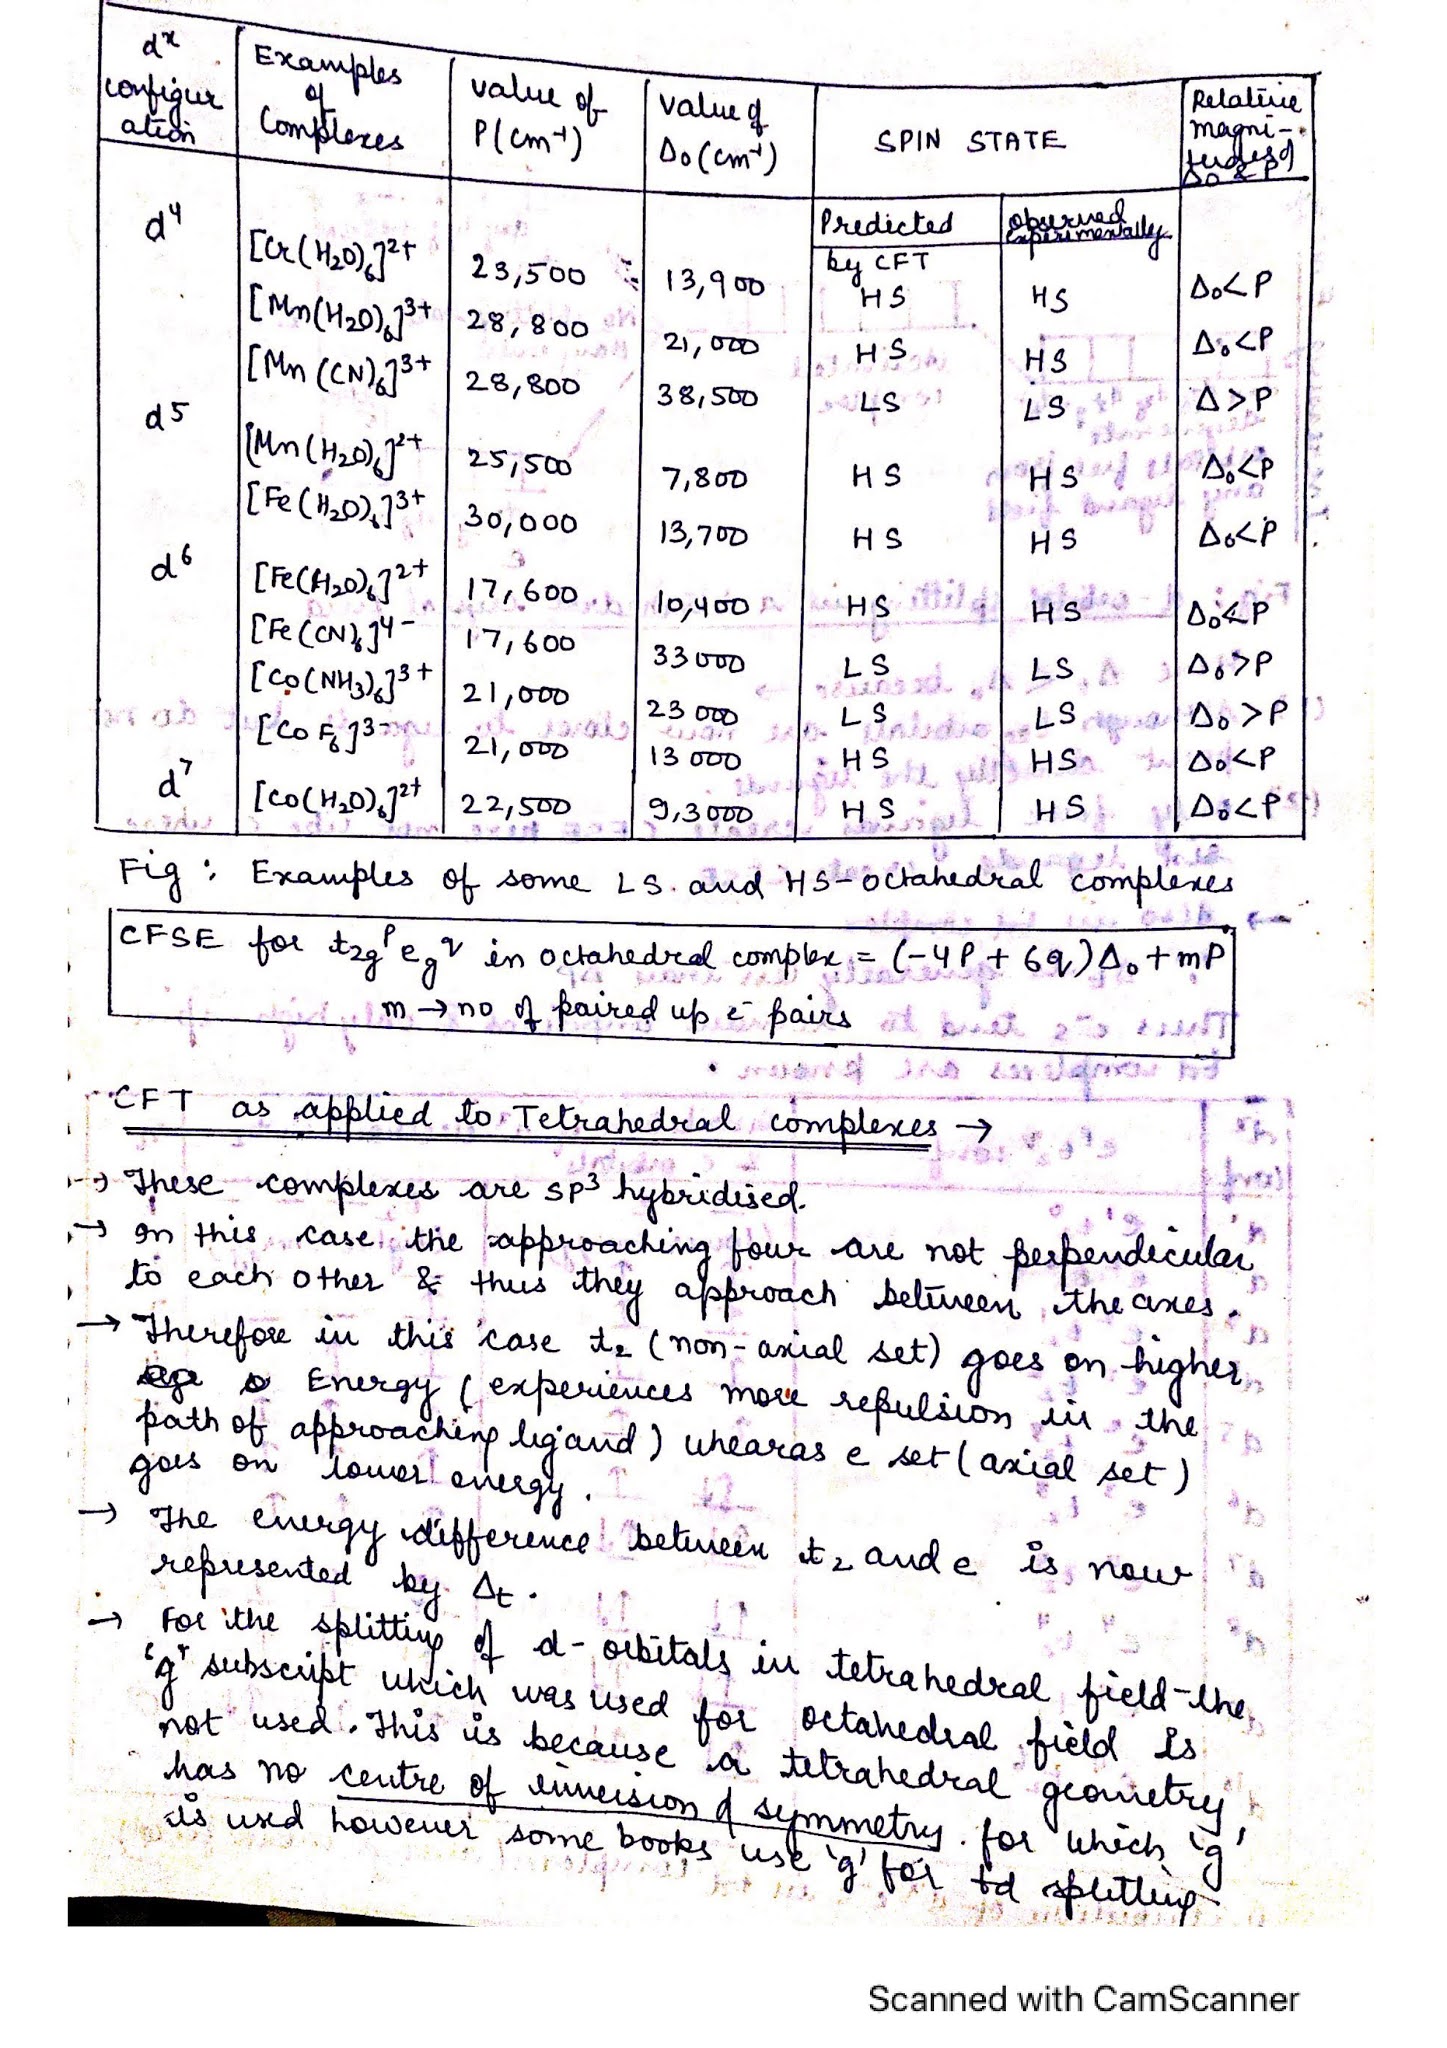 dˣ configuration | Examples of Complexes | value of P(cm⁻¹) | value of Δo(cm⁻¹) | SPIN STATE | Relative magnitudes of Δo & P
Predicted by CFT | observed experimentally
d⁴ | [Cr(H₂O)₆]²⁺ | 23,500 | 13,900 | HS | HS | Δo<P
[Mn(H₂O)₆]³⁺ | 28,800 | 21,000 | HS | HS | Δo<P
[Mn(CN)₆]³⁺ | 28,800 | 38,500 | LS | LS | Δ>P
d⁵ | [Mn(H₂O)₆]²⁺ | 25,500 | 7,800 | HS | HS | Δo<P
[Fe(H₂O)₆]³⁺ | 30,000 | 13,700 | HS | HS | Δo<P
d⁶ | [Fe(H₂O)₆]²⁺ | 17,600 | 10,400 | HS | HS | Δo<P
[Fe(CN)₆]⁴⁻ | 17,600 | 33000 | LS | LS | Δo>P
[Co(NH₃)₆]³⁺ | 21,000 | 23000 | LS | LS | Δo>P
[CoF₆]³⁻ | 21,000 | 13000 | HS | HS | Δo<P
d⁷ | [Co(H₂O)₆]²⁺ | 22,500 | 9,3000 | HS | HS | Δo<P
Fig : Examples of some LS. and HS-octahedral complexes
CFSE for t₂gᵖ eg^q in octahedral complex = (-4P + 6q)Δo + mP
m → no of paired up e⁻ pairs
CFT as applied to Tetrahedral complexes →
→ These complexes are sp³ hybridised.
→ In this case the approaching four are not perpendicular
to each other & thus they approach between the axes.
→ Therefore in this case t₂ (non-axial set) goes on higher
Energy (experiences more repulsion in the
path of approaching ligand) whearas e set (axial set)
goes on lower energy.
→ The energy difference between t₂ and e is now
represented by Δt.
→ For the splitting of d-orbitals in tetrahedral field-the
'g' subscript which was used for octahedral field is
not used. This is because a tetrahedral geometry
has no centre of inversion of symmetry. for which 'g'
is used however some books use 'g' for td splitting.
Scanned with CamScanner